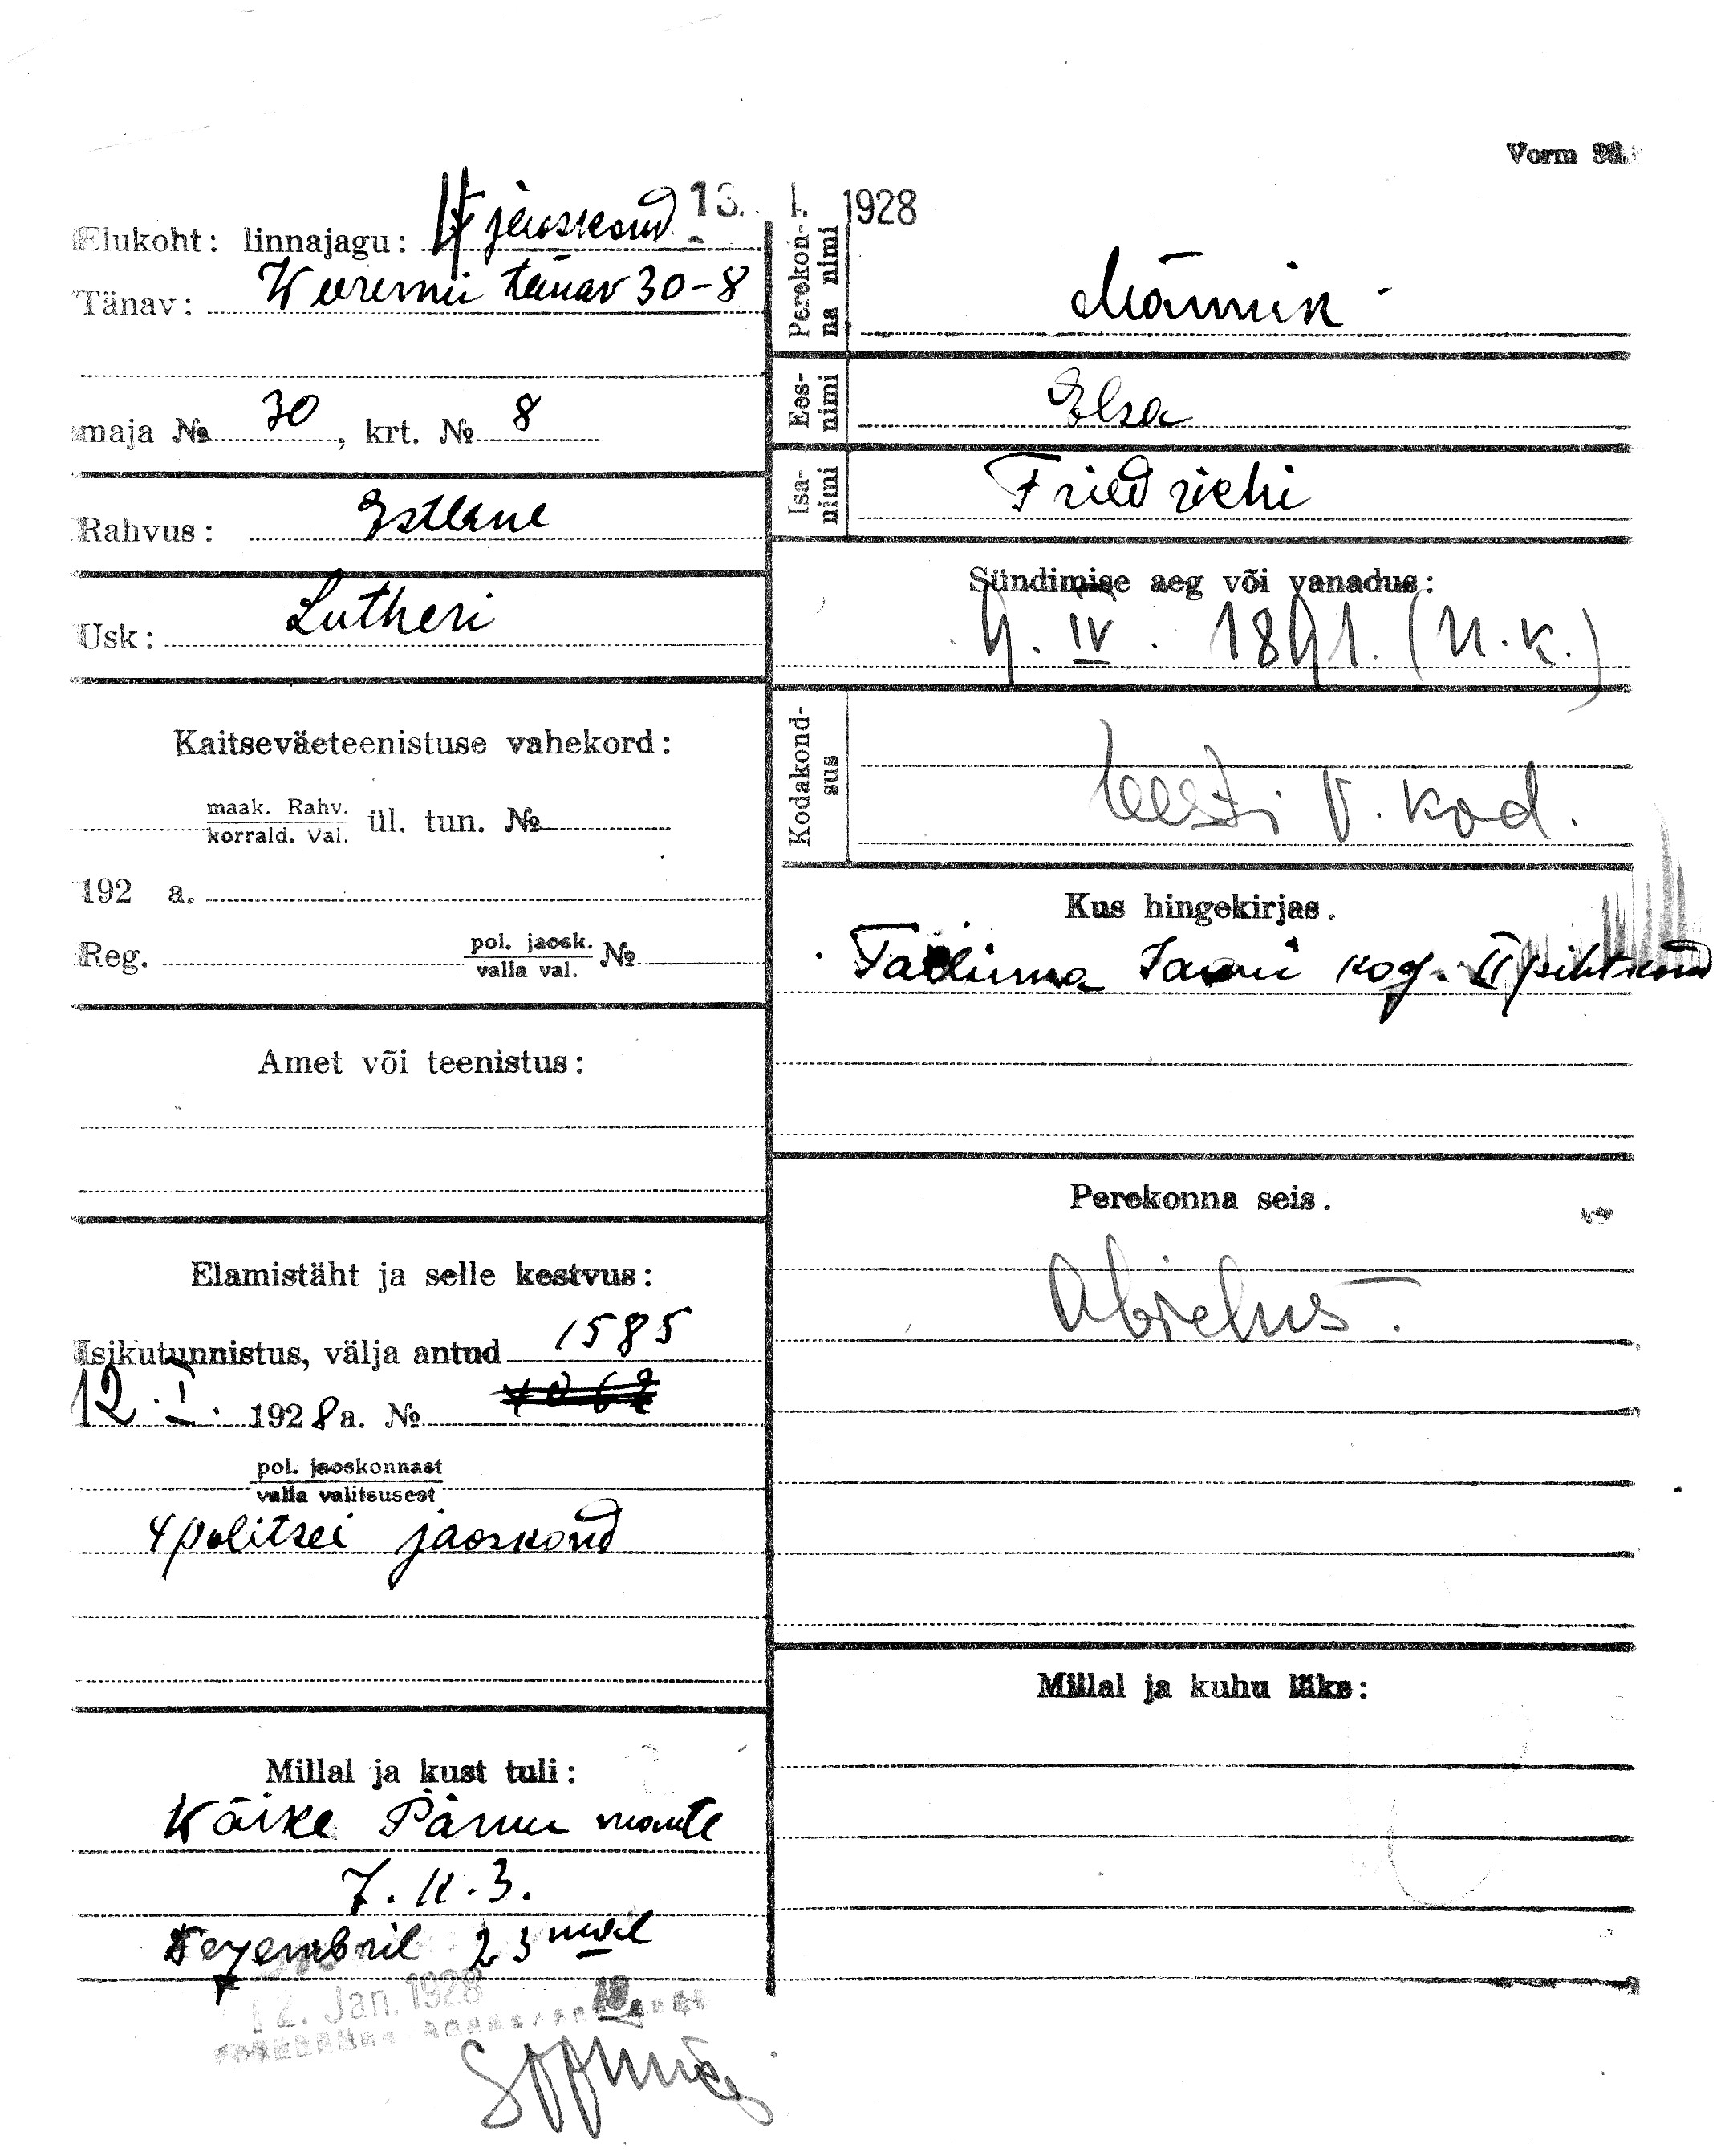 Vorm
13. I. 1928
Elukoht: linnajagu: jaoskond
Tänav: tänav 30-8
maja № 30, krt. № 8
Rahvus: Estlane
Usk: Lutheri
Kaitseväeteenistuse vahekord:
maak. Rahv.
korrald. Val. ül. tun. №
192 a.
Reg. pol. jaosk.
valla val. №
Amet või teenistus:
Elamistäht ja selle kestvus:
Isikutunnistus, välja antud 1585
12. I. 1928 a. №
pol. jaoskonnast
valla valitsusest
4 politsei jaoskond
Millal ja kust tuli:
Wäike Pärnu mante
7. k. 3.
Dezembril 23 mal
12. Jan. 1928
Perekon-
na nimi Männik
Ees-
nimi Elsa
Isa-
nimi Friedrichi
Sündimise aeg või vanadus:
9. IV. 1891. (u. k.)
Kodakond-
sus Eesti V. kod.
Kus hingekirjas.
Tallinna Jaani kog. II pihtkond
Perekonna seis.
Abielus.
Millal ja kuhu läks: